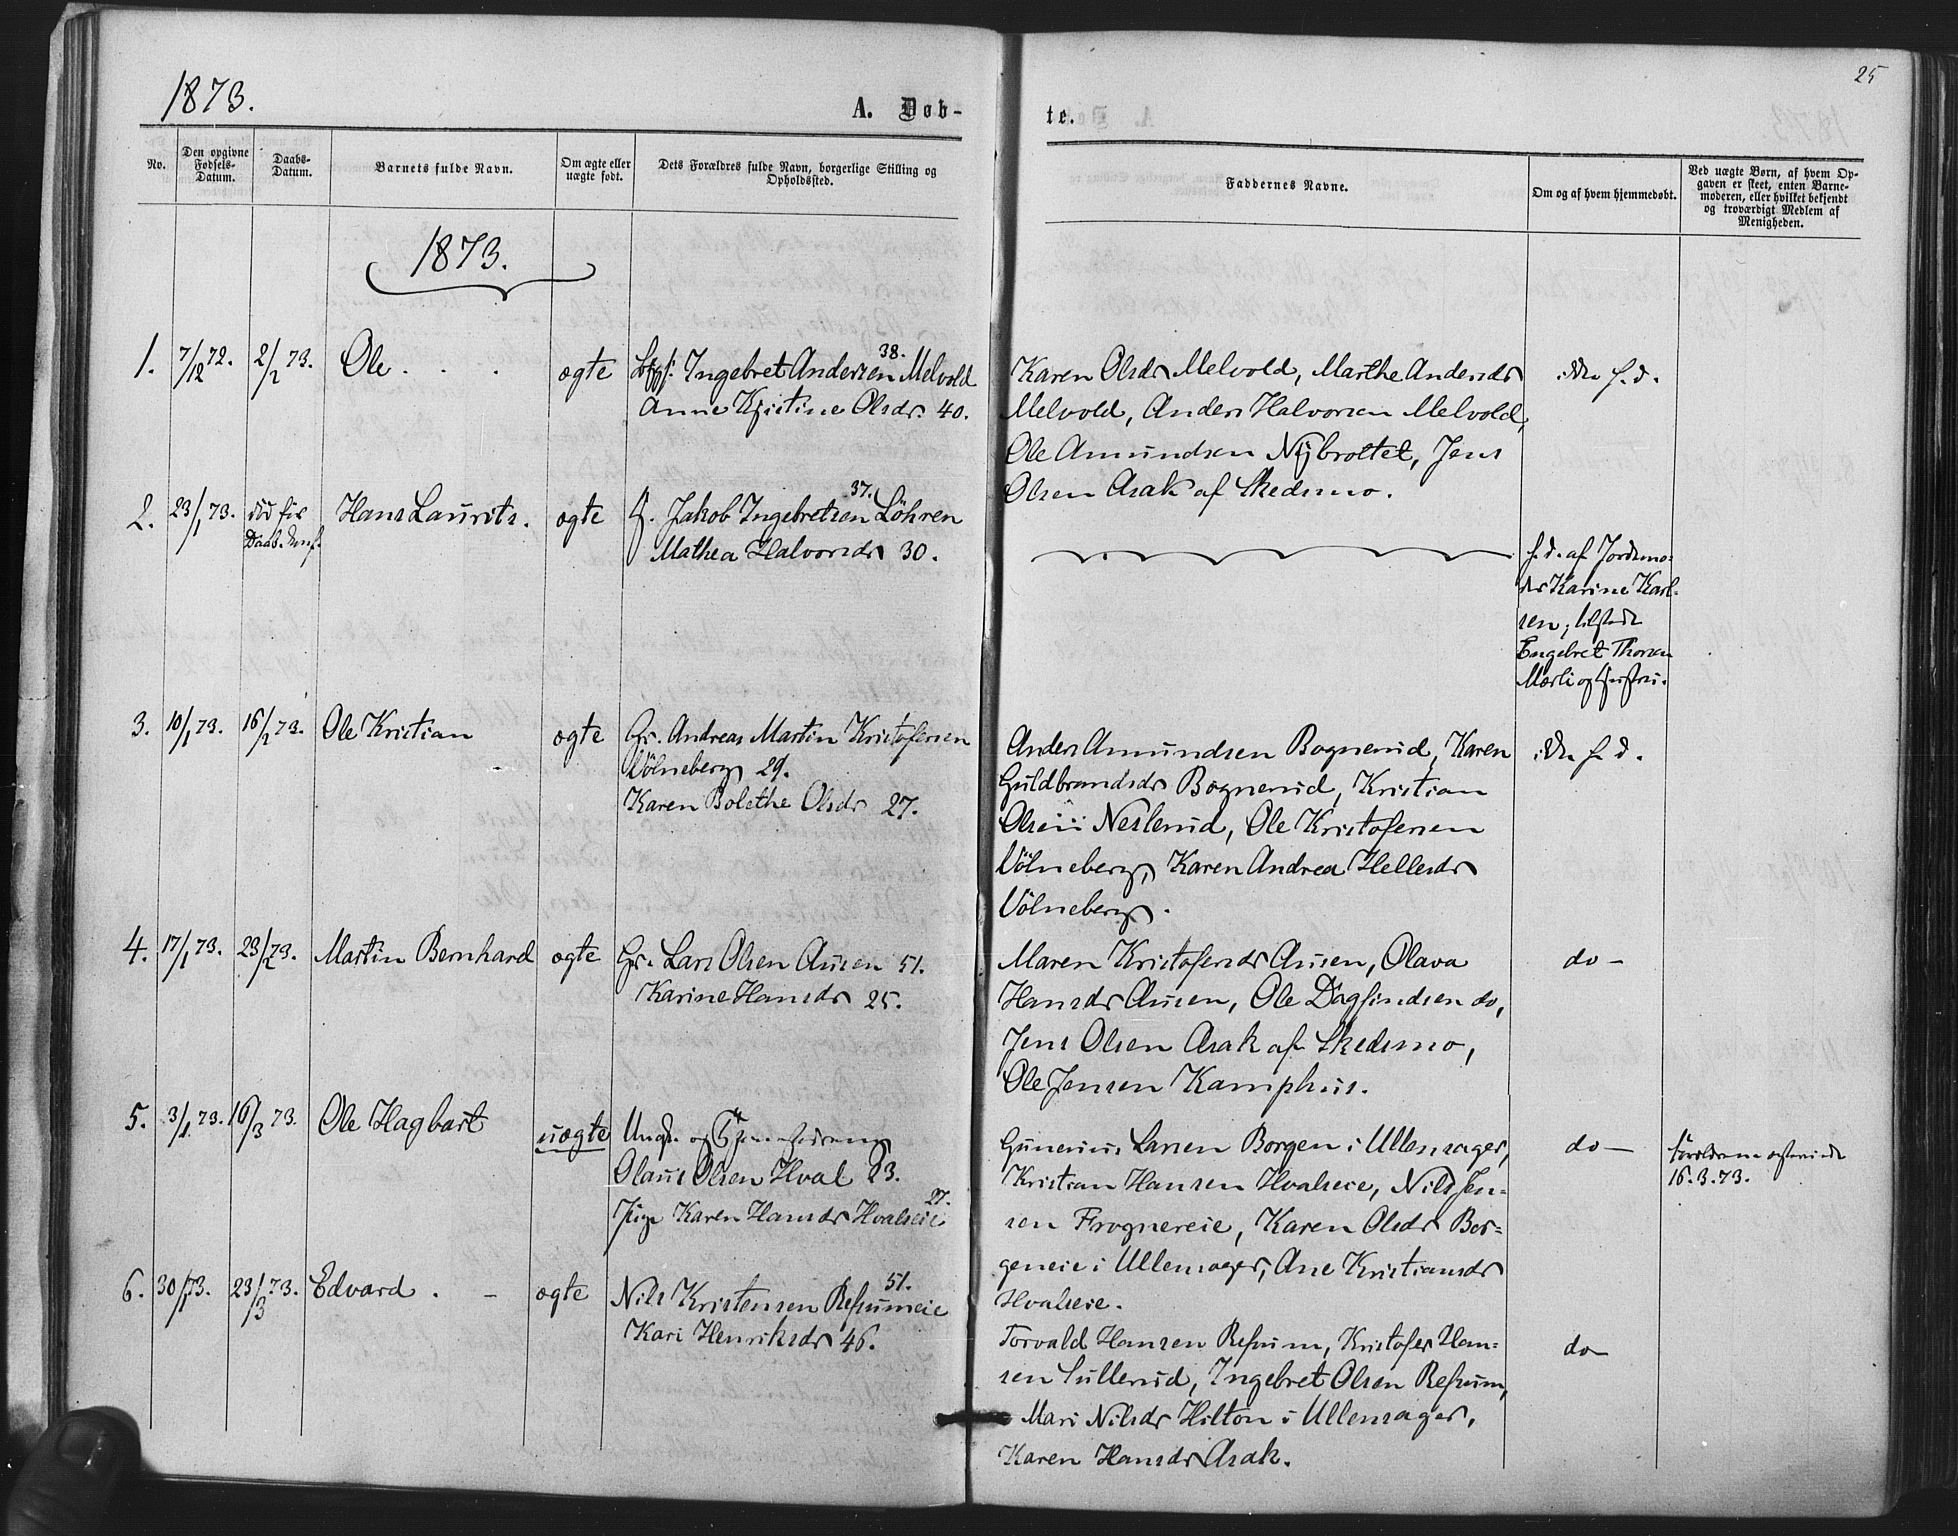 1873.
A. Døb-
te.
25
No.
Den opgivne Fødsels-Datum.
Daabs-Datum.
Barnets fulde Navn.
Om ægte eller uægte født.
Dets Forældres fulde Navn, borgerlige Stilling og Opholdssted.
Faddernes Navne.
Om og af hvem hjemmedøbt.
Ved uægte Børn, af hvem Op-
gaven er skeet, enten Barne-
moderen, eller hvilket bekjendt
og troværdigt Medlem af
Menigheden.
1873.
1. 7/12 72. 2/2 73. Ole . . . ægte Ingebret Andersen Melvold 38.
Anne Kristine Olsdr. 40.
Karen Olsdr Melvold, Marthe Andersdr
Melvold, Anders Halvorsen Melvold,
Ole Amundsen Nybrottet, Jens
Olsen Asak af Skedsmo.
ikke h. d.
2. 23/1 73. død før
Daab. Hans Laurits. ægte G. Jakob Ingebretsen Löhren 37.
Mathea Halvorsdr 30.
h. d. af Jordemo-
der Karine Karl-
sen; tilstede
Engebret Thorsen
Mæli og Hustru.
3. 10/1 73. 16/2 73. Ole Kristian ægte Gr. Andreas Martin Kristofersen
Völneberg 29.
Karen Bolethe Olsdr 27.
Anders Amundsen Bognerud, Karen
Guldbrandsdr Bognerud, Kristian
Olsen Neslerud, Ole Kristofersen
Völneberg, Karen Andrea Hellesdr
Völneberg.
ikke h. d.
4. 17/1 73. 23/2 73. Martin Bernhard ægte Gr. Lars Olsen Ausen 51.
Karine Hansdr 25.
Maren Kristofersdr Ausen, Olava
Hansdr Ausen, Ole Dagfindsen do,
Jens Olsen Asak af Skedsmo,
Ole Jensen Kamphus.
do —
5. 3/1 73. 16/3 73. Ole Hagbart uægte Ungk. og
Olaus Olsen Hval 23.
Pige Karen Hansdr Hvalseie 27.
Gunerius Larsen Borgen i Ullensager,
Kristian Hansen Hvalseie, Nils Jen-
sen Frognereie, Karen Olsdr Bor-
geneie i Ullensager, Ane Kristiansdr
Hvalseie.
do —
Forældrene
16.3.73.
6. 30/1 73. 23/3 73. Edvard . - ægte Nils Kristensen Refsumeie 51.
Kari Henriksdr 46.
Torvald Hansen Refsum, Kristofer Han-
sen Sullerud, Ingebret Olsen Refsum,
Mari Nilsdr Hilton i Ullensager,
Karen Hansdr Asak.
do —